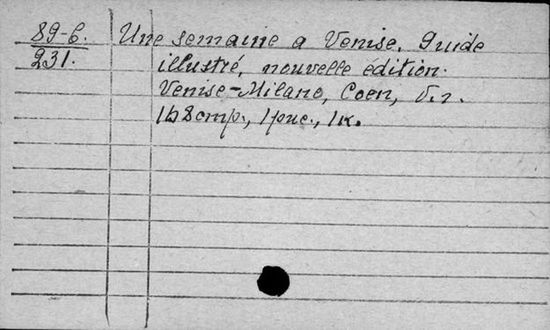 89-6.
231.
Une semaine a Venise. Guide
illustré, nouvelle édition.
Venise-Milano, Coen, s.a.
162 стр., 1 рис., 1 к.